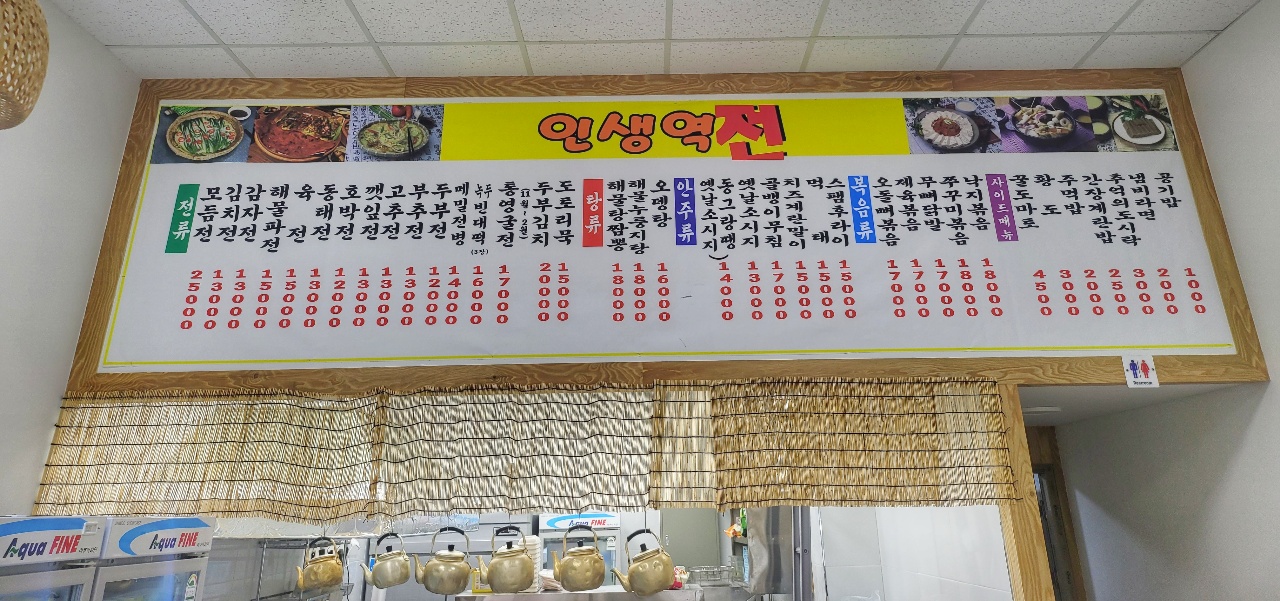 인생역전
전류
모듬전 25000
김치전 13000
감자전 13000
해물파전 15000
육전 15000
동태전 13000
호박전 12000
깻잎전 13000
고추전 13000
부추전 13000
두부전 12000
메밀전병 14000
녹두빈대떡 (3장) 16000
통영굴전 (11월~2월) 17000
두부김치 20000
도토리묵 15000
탕류
해물탕짬뽕 18000
해물누룽지탕 18000
오뎅탕 16000
안주류
옛날소시지(동그랑땡) 14000
옛날소시지 13000
골뱅이무침 17000
치즈계란말이 15000
먹태 15000
스팸후라이 15000
볶음류
오돌뼈볶음 17000
제육볶음 17000
무뼈닭발 17000
쭈꾸미볶음 18000
낙지볶음 18000
사이드메뉴
꿀도마토 4500
황도 3000
주먹밥 2000
간장계란밥 2500
추억의도시락 3000
냄비라면 2000
공기밥 1000
Aqua FINE
Aqua FINE
Aqua FINE